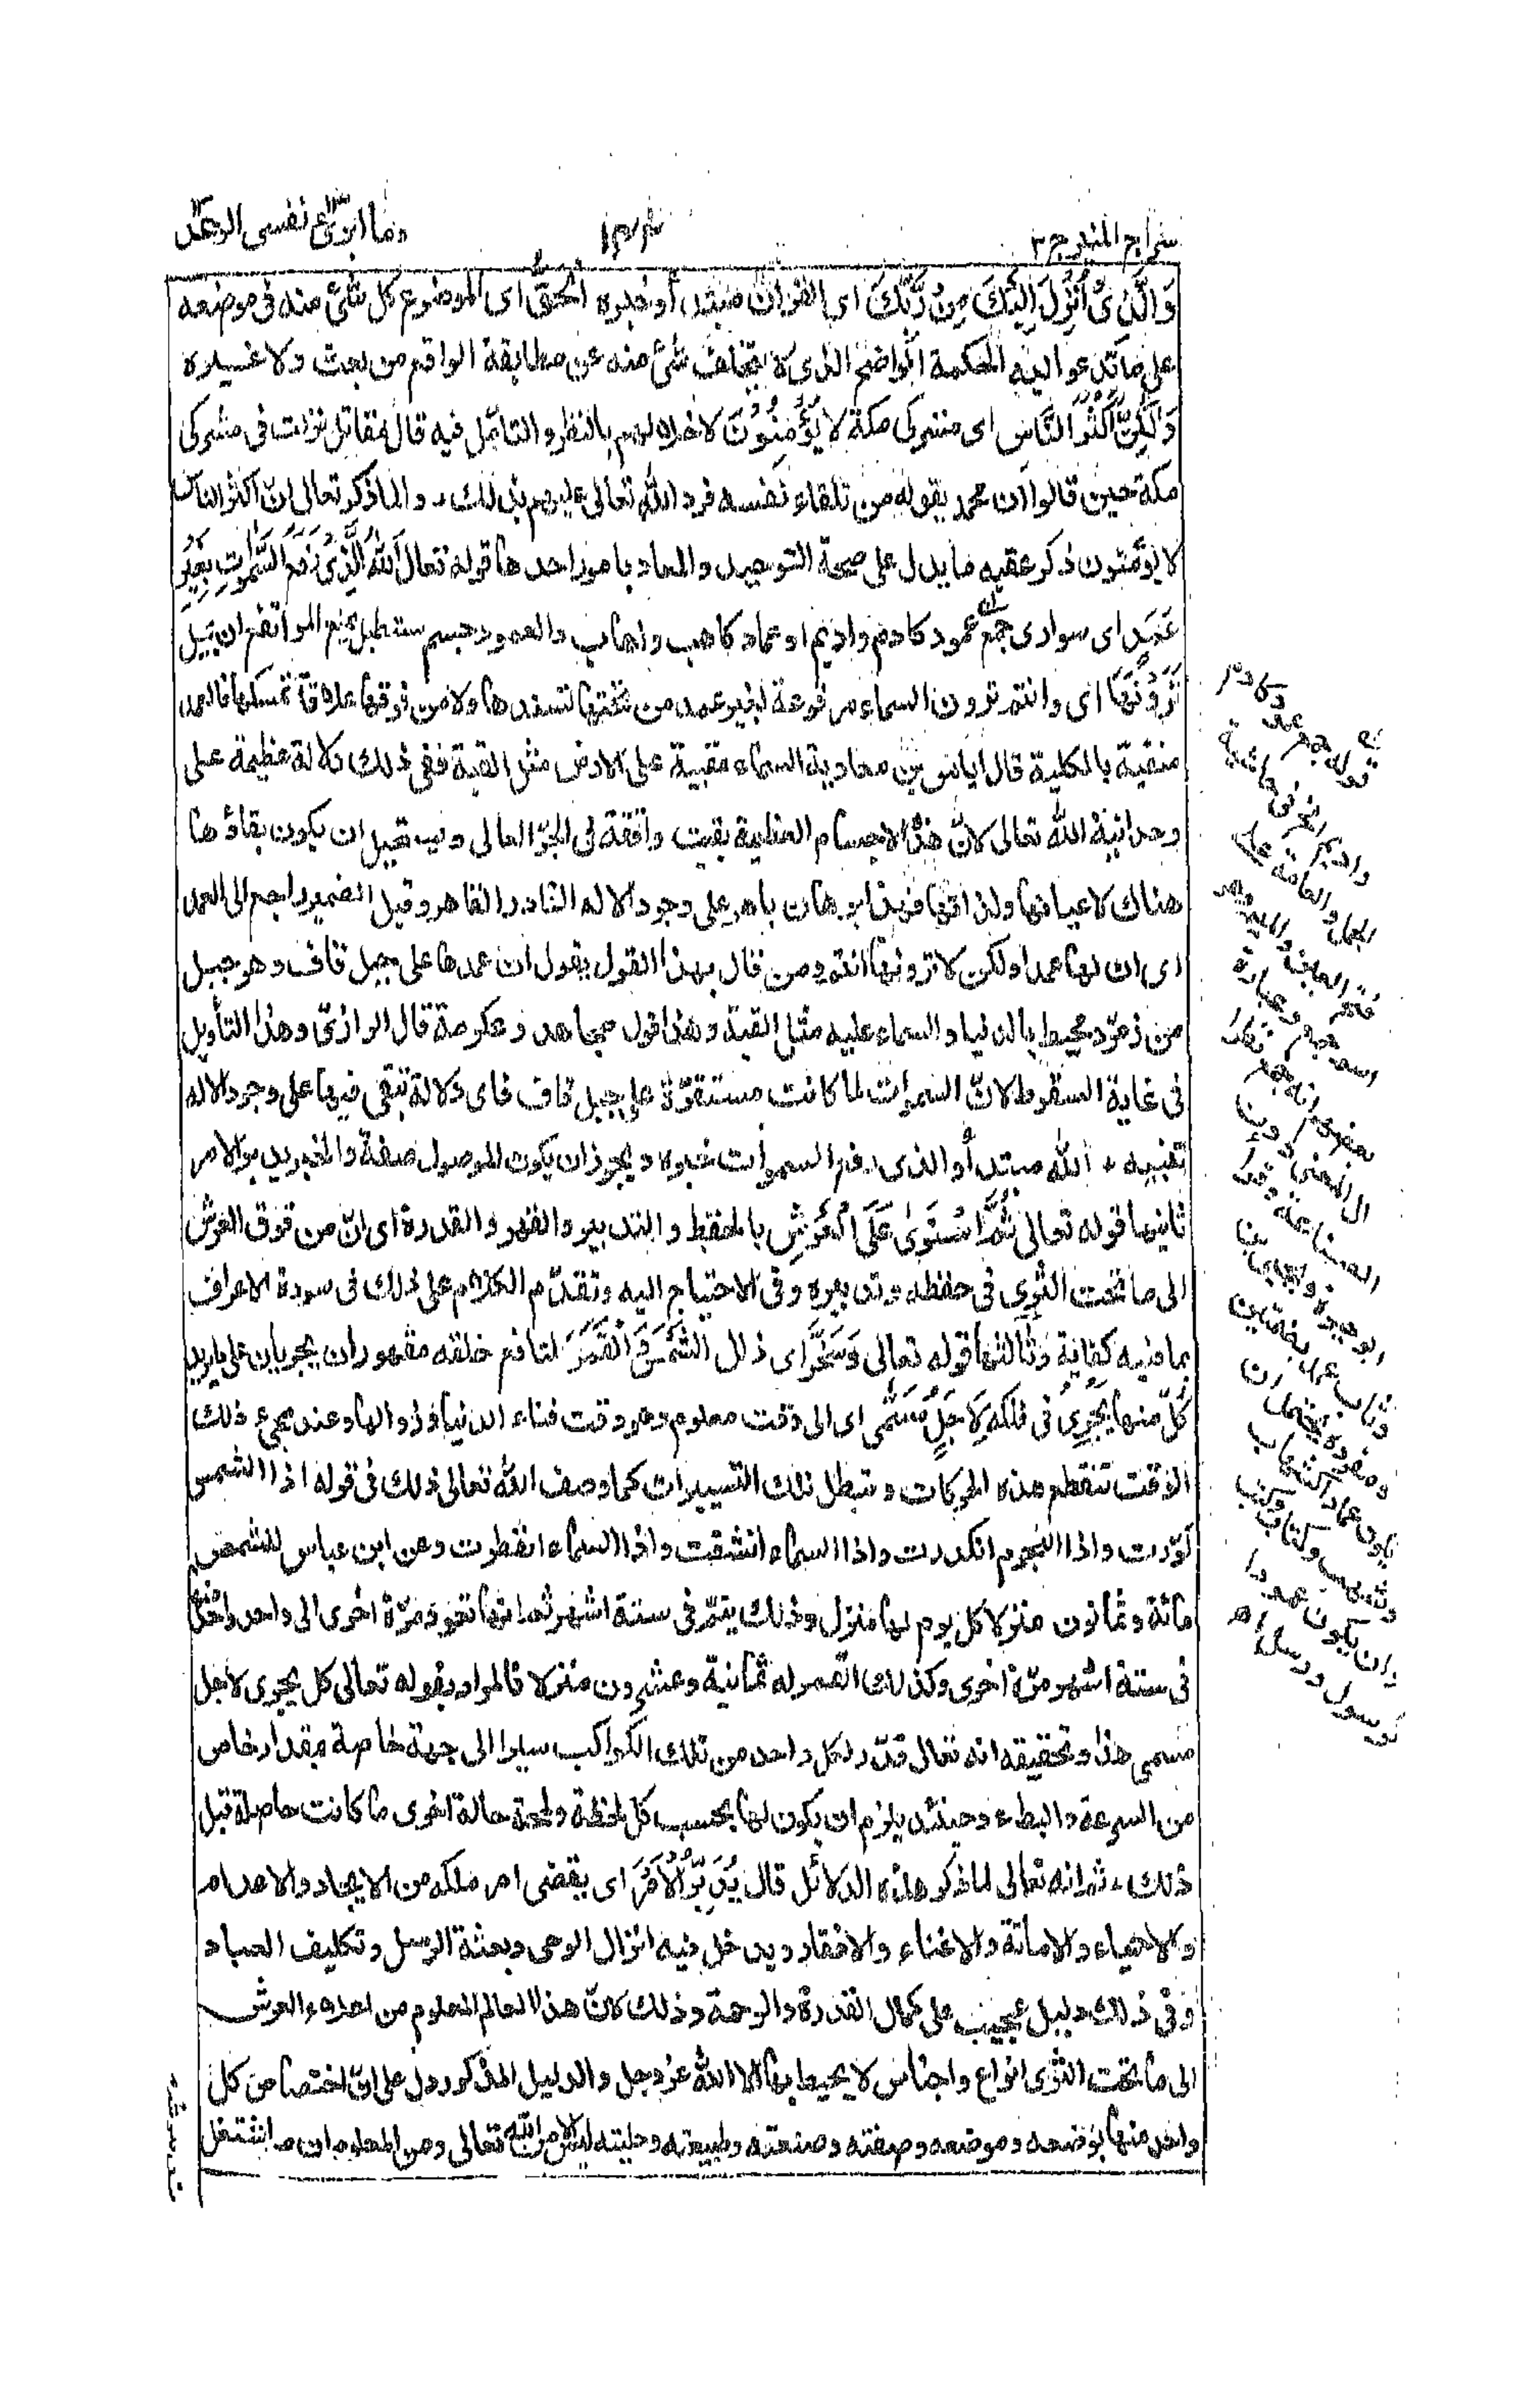 سراج المنير ج ٢
١٤٣
وما ابرئ نفسى الرعد
وَالَّذِىْ اُنْزِلَ اِلَيْكَ مِنْ رَّبِّكَ اى القرآن مبتدأ وخبره الْحَقُّ اى الموضوع كل شئ منه فى موضعه
على ما تدعو اليه الحكمة الواضح الذى لا يتخلف شئ منه عن مطابقة الواقع من بعث ولا غيره
وَلٰكِنَّ اَكْثَرَ النَّاسِ اى مشركى مكة لا يُؤْمِنُوْنَ لاخلالهم بالنظر والتأمل فيه قال مقاتل نزلت فى مشركى
مكة حين قالوا ان محمد يقوله من تلقاء نفسه فرد الله تعالى عليهم بذلك ۔ ولما ذكر تعالى انّ اكثر الناس
لا يؤمنون ذكر عقبه ما يدل على صحة التوحيد والمعاد بامور احدها قوله تعالى اَللّٰهُ الَّذِىْ رَفَعَ السَّمٰوٰتِ بِغَيْرِ
عَمَدٍ اى سوارى جمع عمود كادم واديم او عماد كاهب واهاب والعمود جسم مستطيل يمنع المرتفع ان يميل
تَرَوْنَهَا اى وانتم ترون السماء مرفوعة بغير عمد من تحتها تسندها ولا من فوقها علاقة تمسكها فالعمد
منفية بالكلية قال اياس بن معاوية السماء مقببة على الارض مثل القبة ففى ذلك دلالة عظيمة على
وحدانية الله تعالى لانّ هذه الاجسام العظيمة بقيت واقفة فى الجوّ العالى ويستحيل ان يكون بقاؤها
هناك لاعيانها ولذاتها فهذا برهان باهر على وجود الاله القادر القاهر وقيل الضمير راجع الى العمد
اى ان لها عمدا ولكن لا ترونها انتم ومن قال بهذا القول يقول ان عمدها على جبل قاف وهو جبل
من زمرّد محيط بالدنيا والسماء عليه مثل القبة وهذا قول مجاهد وعكرمة قال الرازىّ وهذا التأويل
فى غاية السقوط لانّ السموات لما كانت مستقرّة على جبل قاف فاى دلالة تبقى فيها على وجود الاله
تنبيه ٭ الله مبتدأ والذى رفع السموات خبره ويجوز ان يكون الموصول صفة والخبر يدبر الامر
ثانيها قوله تعالى ثُمَّ اسْتَوٰى عَلَى الْعَرْشِ بالحفظ والتدبير والقهر والقدرة اى انّ من فوق العرش
الى ما تحت الثرى فى حفظه وتدبيره وفى الاحتياج اليه وتقدّم الكلام على ذلك فى سورة الاعراف
بما فيه كفاية وثالثها قوله تعالى وَسَخَّرَ اى ذلل الشَّمْسَ وَالْقَمَرَ لمنافع خلقه مقهوران يجريان على ما يريد
كُلّ منها يَجْرِىْ فى فلكه لِاَجَلٍ مُّسَمًّى اى الى وقت معلوم وهو وقت فناء الدنيا وزوالها وعند مجىء ذلك
الوقت تنقطع هذه الحركات وتبطل تلك التسييرات كما وصف الله تعالى ذلك فى قوله اذا الشمس
كوّرت واذا النجوم انكدرت واذا السماء انشقت واذا السماء انفطرت وعن ابن عباس للشمس
مائة وثمانون منزلا كل يوم لها منزل وذلك يتمّ فى ستة اشهر ثم انها تعود مرّة اخرى الى واحد واحد منها
فى ستة اشهر مرّة اخرى وكذلك القمر له ثمانية وعشرون منزلا فالمراد بقوله تعالى كل يجرى لاجل
مسمى هذا وتحقيقه انه تعالى قدّر لكل واحد من تلك الكواكب سيرا الى جهة خاصة بمقدار خاص
من السرعة والبطء وحينئذ يلزم ان يكون لها بحسب كل لحظة ولمحة حالة اخرى ما كانت حاصلة قبل
ذلك ۔ ثم انه تعالى لما ذكر هذه الدلائل قال يُدَبِّرُ الْاَمْرَ اى يقضى امر ملكه من الايجاد والاعدام
والاحياء والاماتة والاغناء والافقار ويدخل فيه انزال الوحى وبعثة الرسل وتكليف العباد
وفى ذلك دليل عجيب على كمال القدرة والرحمة وذلك لانّ هذا العالم المعلوم من اعلاه العرش
الى ما تحت الثرى انواع واجناس لا يحيط بها الا الله عز وجل والدليل المذكور دل على انّ اختصاص كل
واحد منها بوضعه وموضعه وصفته وصنعته وطبيعته وحليته ليس الا من الله تعالى ومن المعلوم ان من اشتغل
قوله جمع عمد كادم
واديم الخ فى حاشية
الجمل والعامة على
فتح العين والميم وهو
اسم جمع وعبارة
بعضهم انه جمع نظرا
الى المعنى دون
الصناعة وقرأ
ابو حيوة ويحيى بن
وثاب عمد بضمتين
ومفرده يحتمل ان
يكون عماد كشهاب
وشهب وكتاب وكتب
وان يكون عمودا
كرسول ورسل اهـ